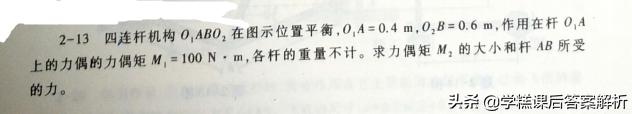 2-13 四连杆机构 O₁ABO₂ 在图示位置平衡,O₁A=0.4 m,O₂B=0.6 m,作用在杆 O₁A
上的力偶的力偶矩 M₁=100 N·m,各杆的重量不计。求力偶矩 M₂ 的大小和杆 AB 所受
的力。
头条@学糕课后答案解析